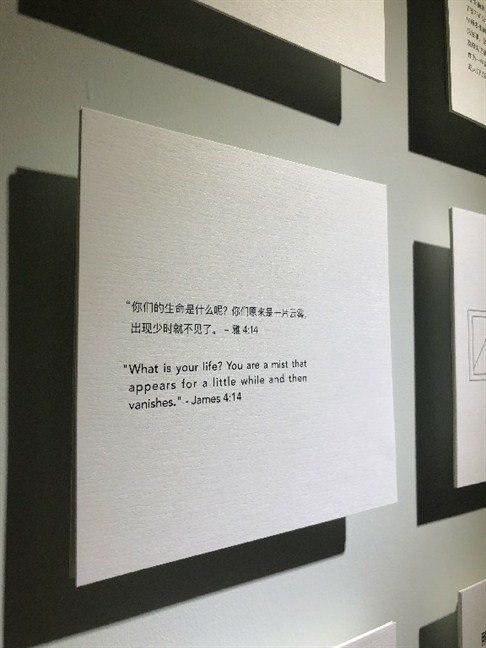 “你们的生命是什么呢? 你们原来是一片云雾,
出现少时就不见了。 – 雅 4:14
"What is your life? You are a mist that
appears for a little while and then
vanishes." - James 4:14